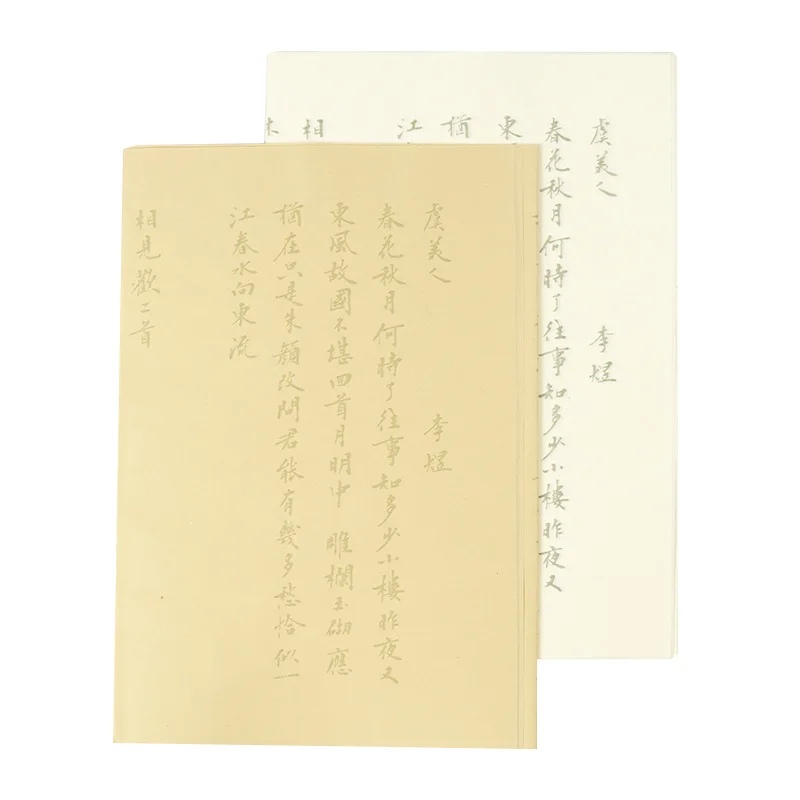 虞美人 李煜
春花秋月何時了往事知多少小樓昨夜又
東風故國不堪回首月明中 雕欄玉砌應
猶在只是朱顏改問君能有幾多愁恰似一
江春水向東流
相見歡二首
虞美人 李煜
春花秋月何時了往事知多少小樓昨夜又
東
猶
江
相